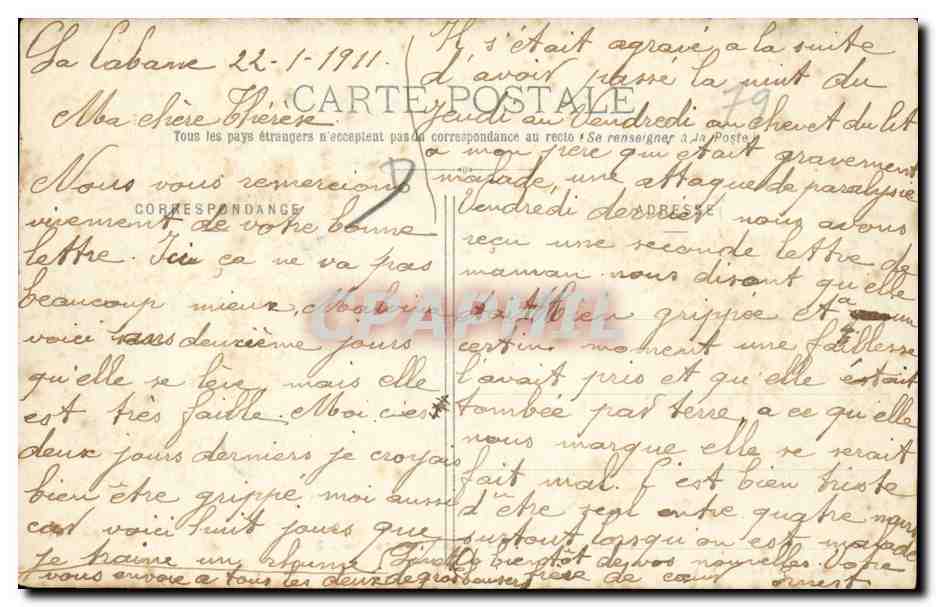 La Cabane 22-1-1911.
Ma chère Thérèse.
Nous vous remercions
vivement de votre bonne
lettre. Ici ça ne va pas
beaucoup mieux,
voici deuxième jours
qu'elle se lève, mais elle
est très faible. Moi ces
deux jours derniers je croyais
bien être grippé moi aussi
car voici huit jours que
je traine un rhume
vous envoie a tous les deux de gros baisers
Il s'était agravé a la suite
d'avoir passé la nuit du
Jeudi au Vendredi au chevet du lit
a mon père qui était gravement
malade, une attaque de paralysie
Vendredi dernier nous avons
reçu une seconde lettre de
maman nous disant qu'elle
bien grippée et a un
certin moment une faiblesse
l'avait pris et qu'elle était
tombée par terre, a ce qu'elle
nous marque elle se serait
fait mal. C'est bien triste
d'être seul entre quatre murs
surtout lorsqu'on est malade
A bientôt de vos nouvelles. Votre
frère de cœur Ernest
CARTE POSTALE
Tous les pays étrangers n'acceptent pas la correspondance au recto (Se renseigner à la Poste)
CORRESPONDANCE
ADRESSE
79
CPAPHIL